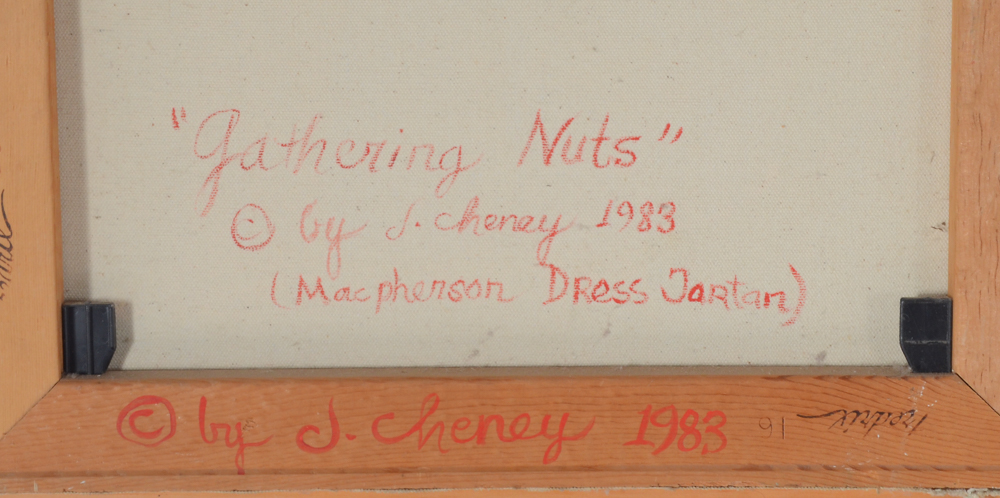 "Gathering Nuts"
© by J. Cheney 1983
(Macpherson Dress Tartan)
© by J. Cheney 1983
16 Fredrix